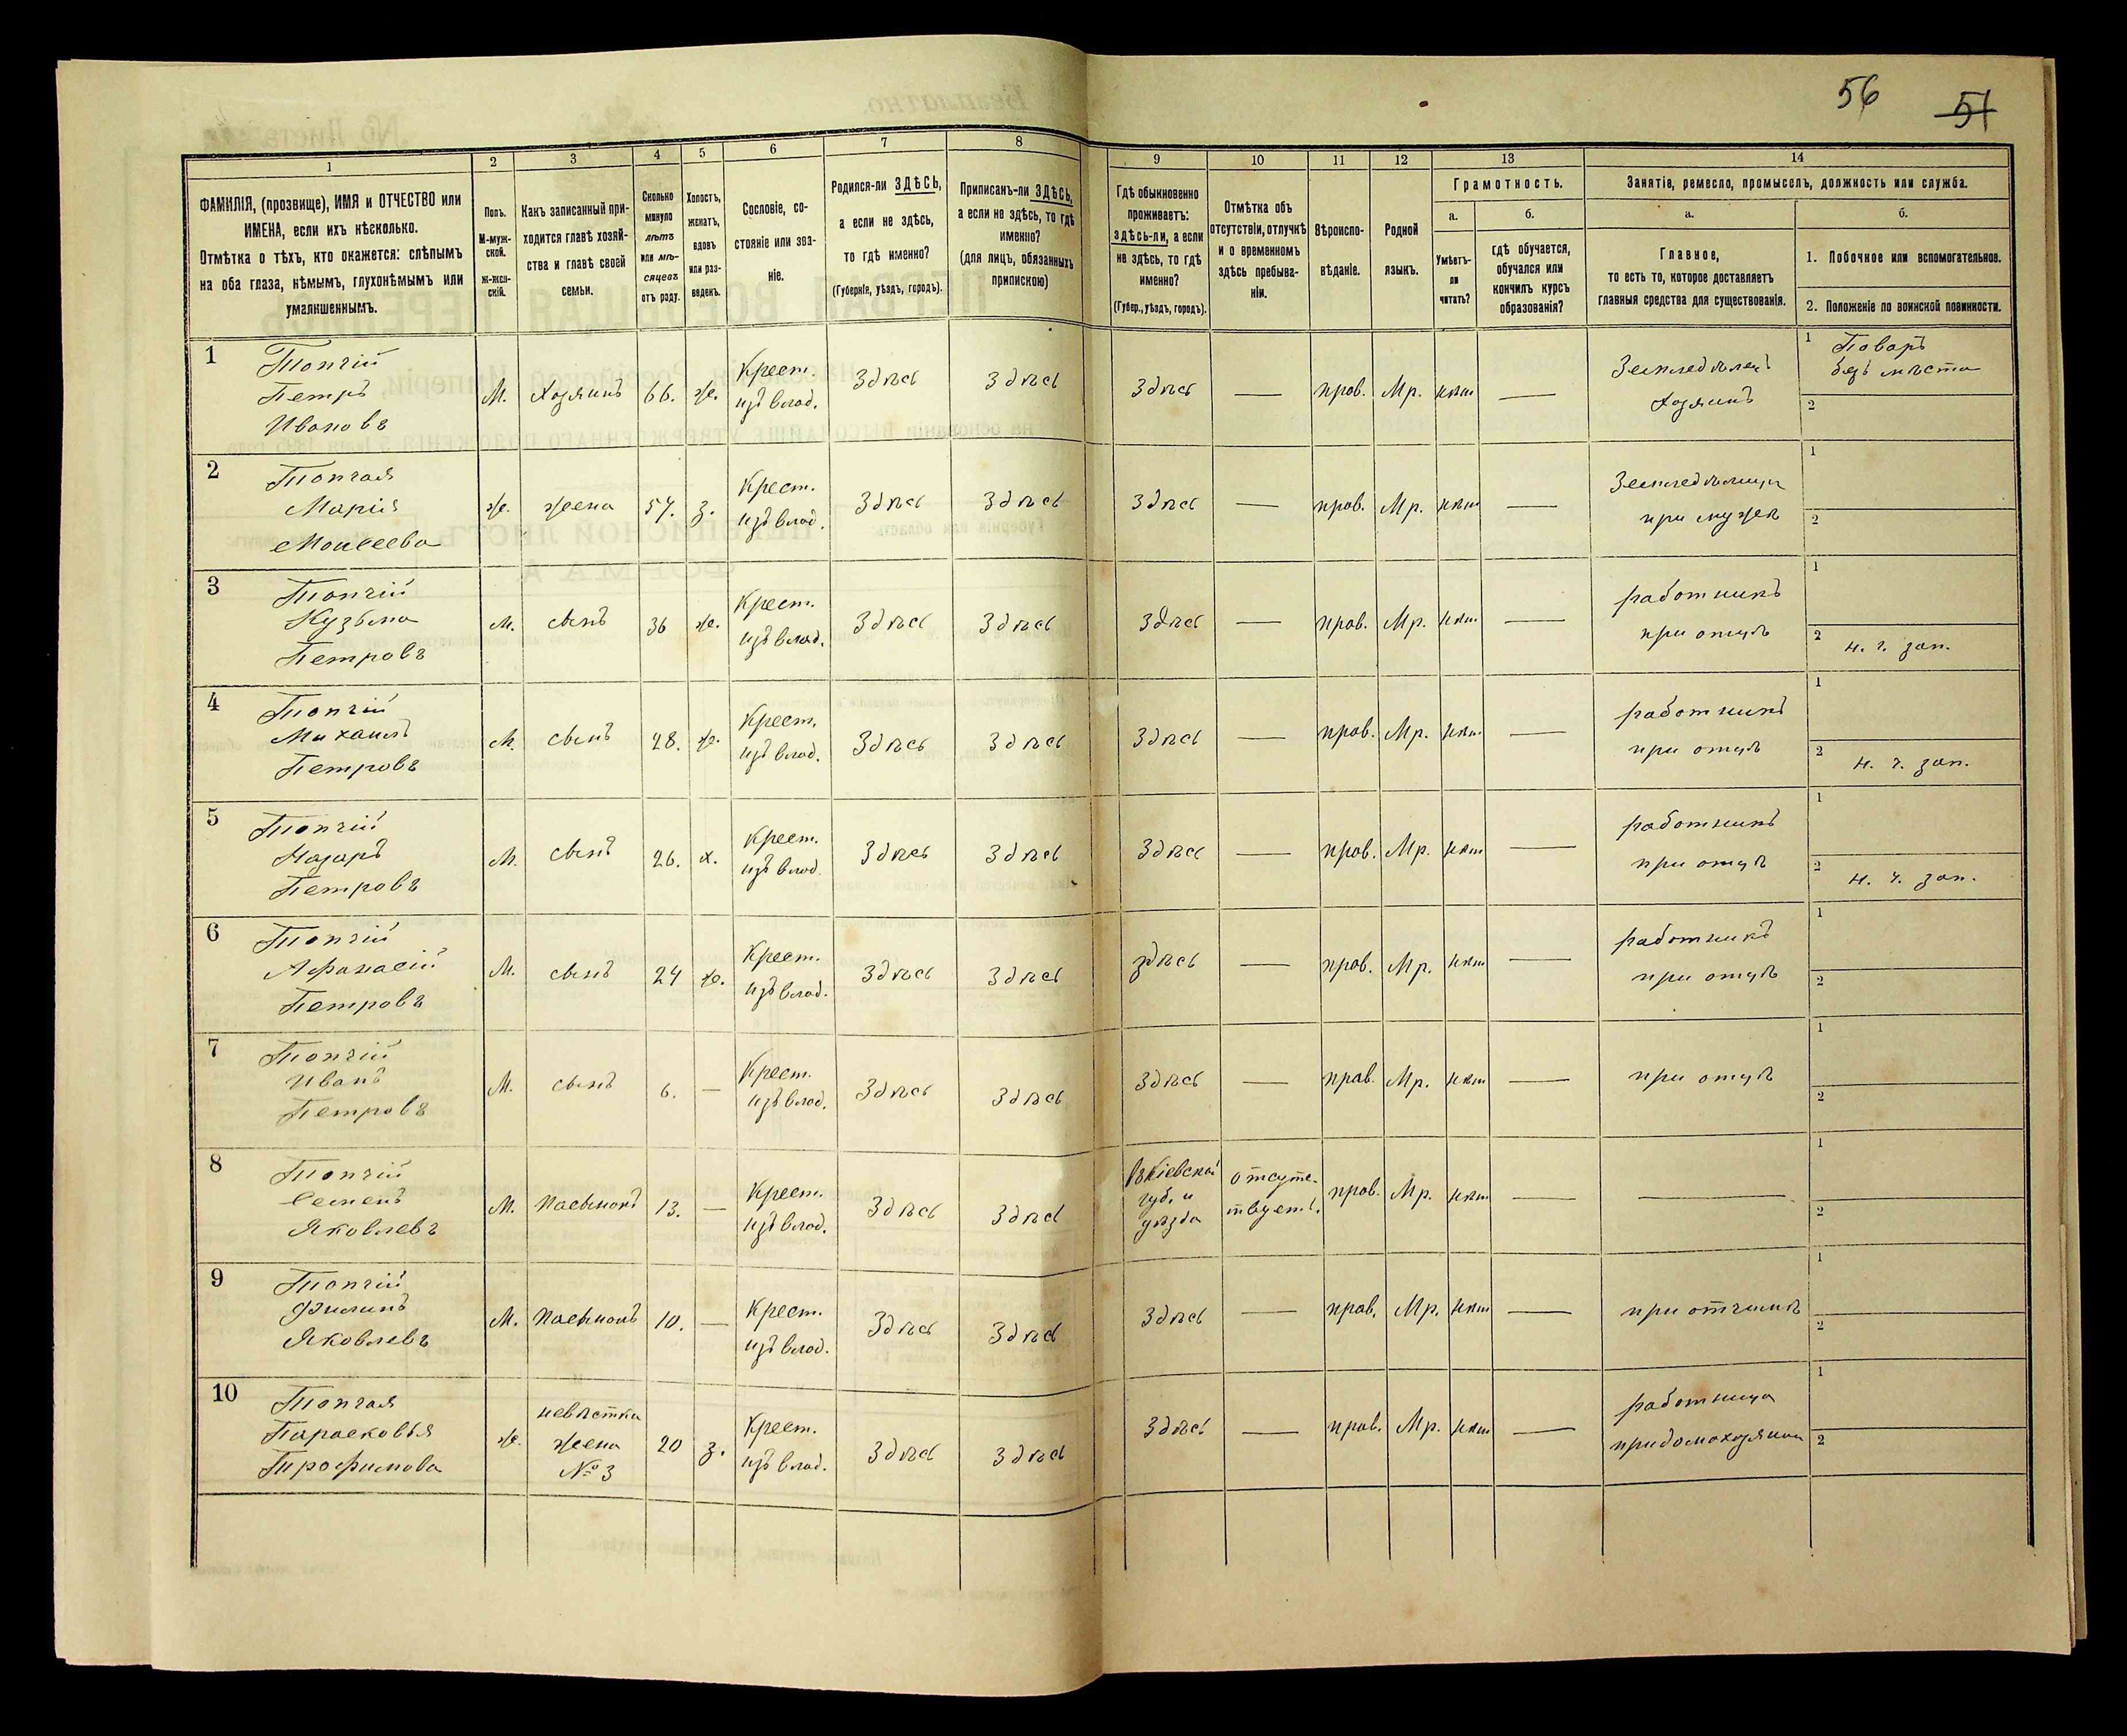 56 51
1 2 3 4 5 6 7 8 9 10 11 12 13 14
ФАМИЛІЯ, (прозвище), ИМЯ и ОТЧЕСТВО или
ИМЕНА, если ихъ нѣсколько.
Отмѣтка о тѣхъ, кто окажется: слѣпымъ
на оба глаза, нѣмымъ, глухонѣмымъ или
умалишеннымъ.
Полъ.
М-муж-
ской.
Ж-жен-
скій.
Какъ записанный при-
ходится главѣ хозяй-
ства и главѣ своей
семьи.
Сколько
минуло
лѣтъ
или мѣ-
сяцевъ
отъ роду.
Холостъ,
женатъ,
вдовъ
или раз-
веденъ.
Сословіе, со-
стояніе или зва-
ніе.
Родился-ли ЗДѢСЬ,
а если не здѣсь,
то гдѣ именно?
(Губернія, уѣздъ, городъ).
Приписанъ-ли ЗДѢСЬ,
а если не здѣсь, то гдѣ
именно?
(для лицъ, обязанныхъ
припискою)
Гдѣ обыкновенно
проживаетъ:
здѣсь-ли, а если
не здѣсь, то гдѣ
именно?
(Губер., уѣздъ, городъ).
Отмѣтка объ
отсутствіи, отлучкѣ
и о временномъ
здѣсь пребыва-
ніи.
Вѣроиспо-
вѣданіе.
Родной
языкъ.
Грамотность.
а.
Умѣетъ-
ли
читать?
б.
гдѣ обучается,
обучался или
кончилъ курсъ
образованія?
Занятіе, ремесло, промыселъ, должность или служба.
а.
Главное,
то есть то, которое доставляетъ
главныя средства для существованія.
б.
1. Побочное или вспомогательное.
2. Положеніе по воинской повинности.
1
Топчій
Петръ
Ивановъ
М. Хозяинъ 66. ж.
Крест.
изъ влад.
Здѣсь Здѣсь Здѣсь — прав. Мр. нѣт —
Земледѣлецъ
Хозяинъ
1 Поваръ
безъ мѣста
2
2
Топчая
Марія
Моисеева
ж. жена 57. з.
Крест.
изъ влад.
Здѣсь Здѣсь Здѣсь — прав. Мр. нѣт —
при мужѣ
1
2
3
Топчій
Кузьма
Петровъ
М. сынъ 36 ж.
Крест.
изъ влад.
Здѣсь Здѣсь Здѣсь — прав. Мр. нѣт —
работникъ
при отцѣ
1
2 н. ч. зап.
4
Топчій
Михаилъ
Петровъ
М. сынъ 28. ж.
Крест.
изъ влад.
Здѣсь Здѣсь Здѣсь — прав. Мр. нѣт —
работникъ
при отцѣ
1
2 н. ч. зап.
5
Топчій
Назаръ
Петровъ
М. сынъ 26. х.
Крест.
изъ влад.
Здѣсь Здѣсь Здѣсь — прав. Мр. нѣт —
работникъ
при отцѣ
1
2 н. ч. зап.
6
Топчій
Афанасій
Петровъ
М. сынъ 24 ж.
Крест.
изъ влад.
Здѣсь Здѣсь здѣсь — прав. Мр. нѣт —
работникъ
при отцѣ
1
2
7
Топчій
Иванъ
Петровъ
М. сынъ 6. —
Крест.
изъ влад.
Здѣсь Здѣсь Здѣсь — прав. Мр. нѣт —
при отцѣ
1
2
8
Топчій
Семенъ
Яковлевъ
М. Пасынокъ 13. —
Крест.
изъ влад.
Здѣсь Здѣсь
Въ Кіевской
губ. и
уѣзда
отсутс-
твуетъ.
прав. Мр. нѣт — —
1
2
9
Топчій
Филипъ
Яковлевъ
М. Пасынокъ 10. —
Крест.
изъ влад.
Здѣсь Здѣсь Здѣсь — прав. Мр. нѣт —
при отчимѣ
1
2
10
Топчая
Парасковья
Трофимова
ж.
невѣстка
жена
№ 3
20 з.
Крест.
изъ влад.
Здѣсь Здѣсь Здѣсь — прав. Мр. нѣт —
работница
1
2